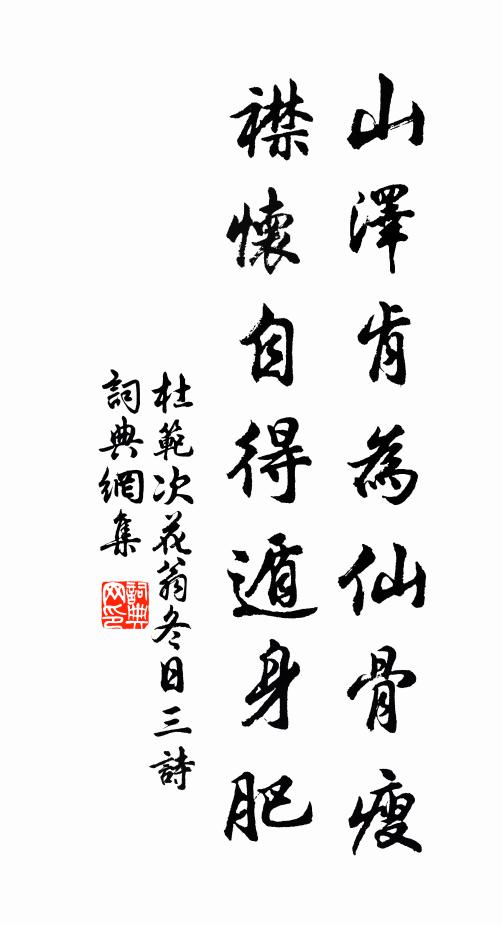 山澤肯為仙骨瘦
襟懷自得遁身肥
杜範次花翁冬日三詩
詞典網集
詞典网印